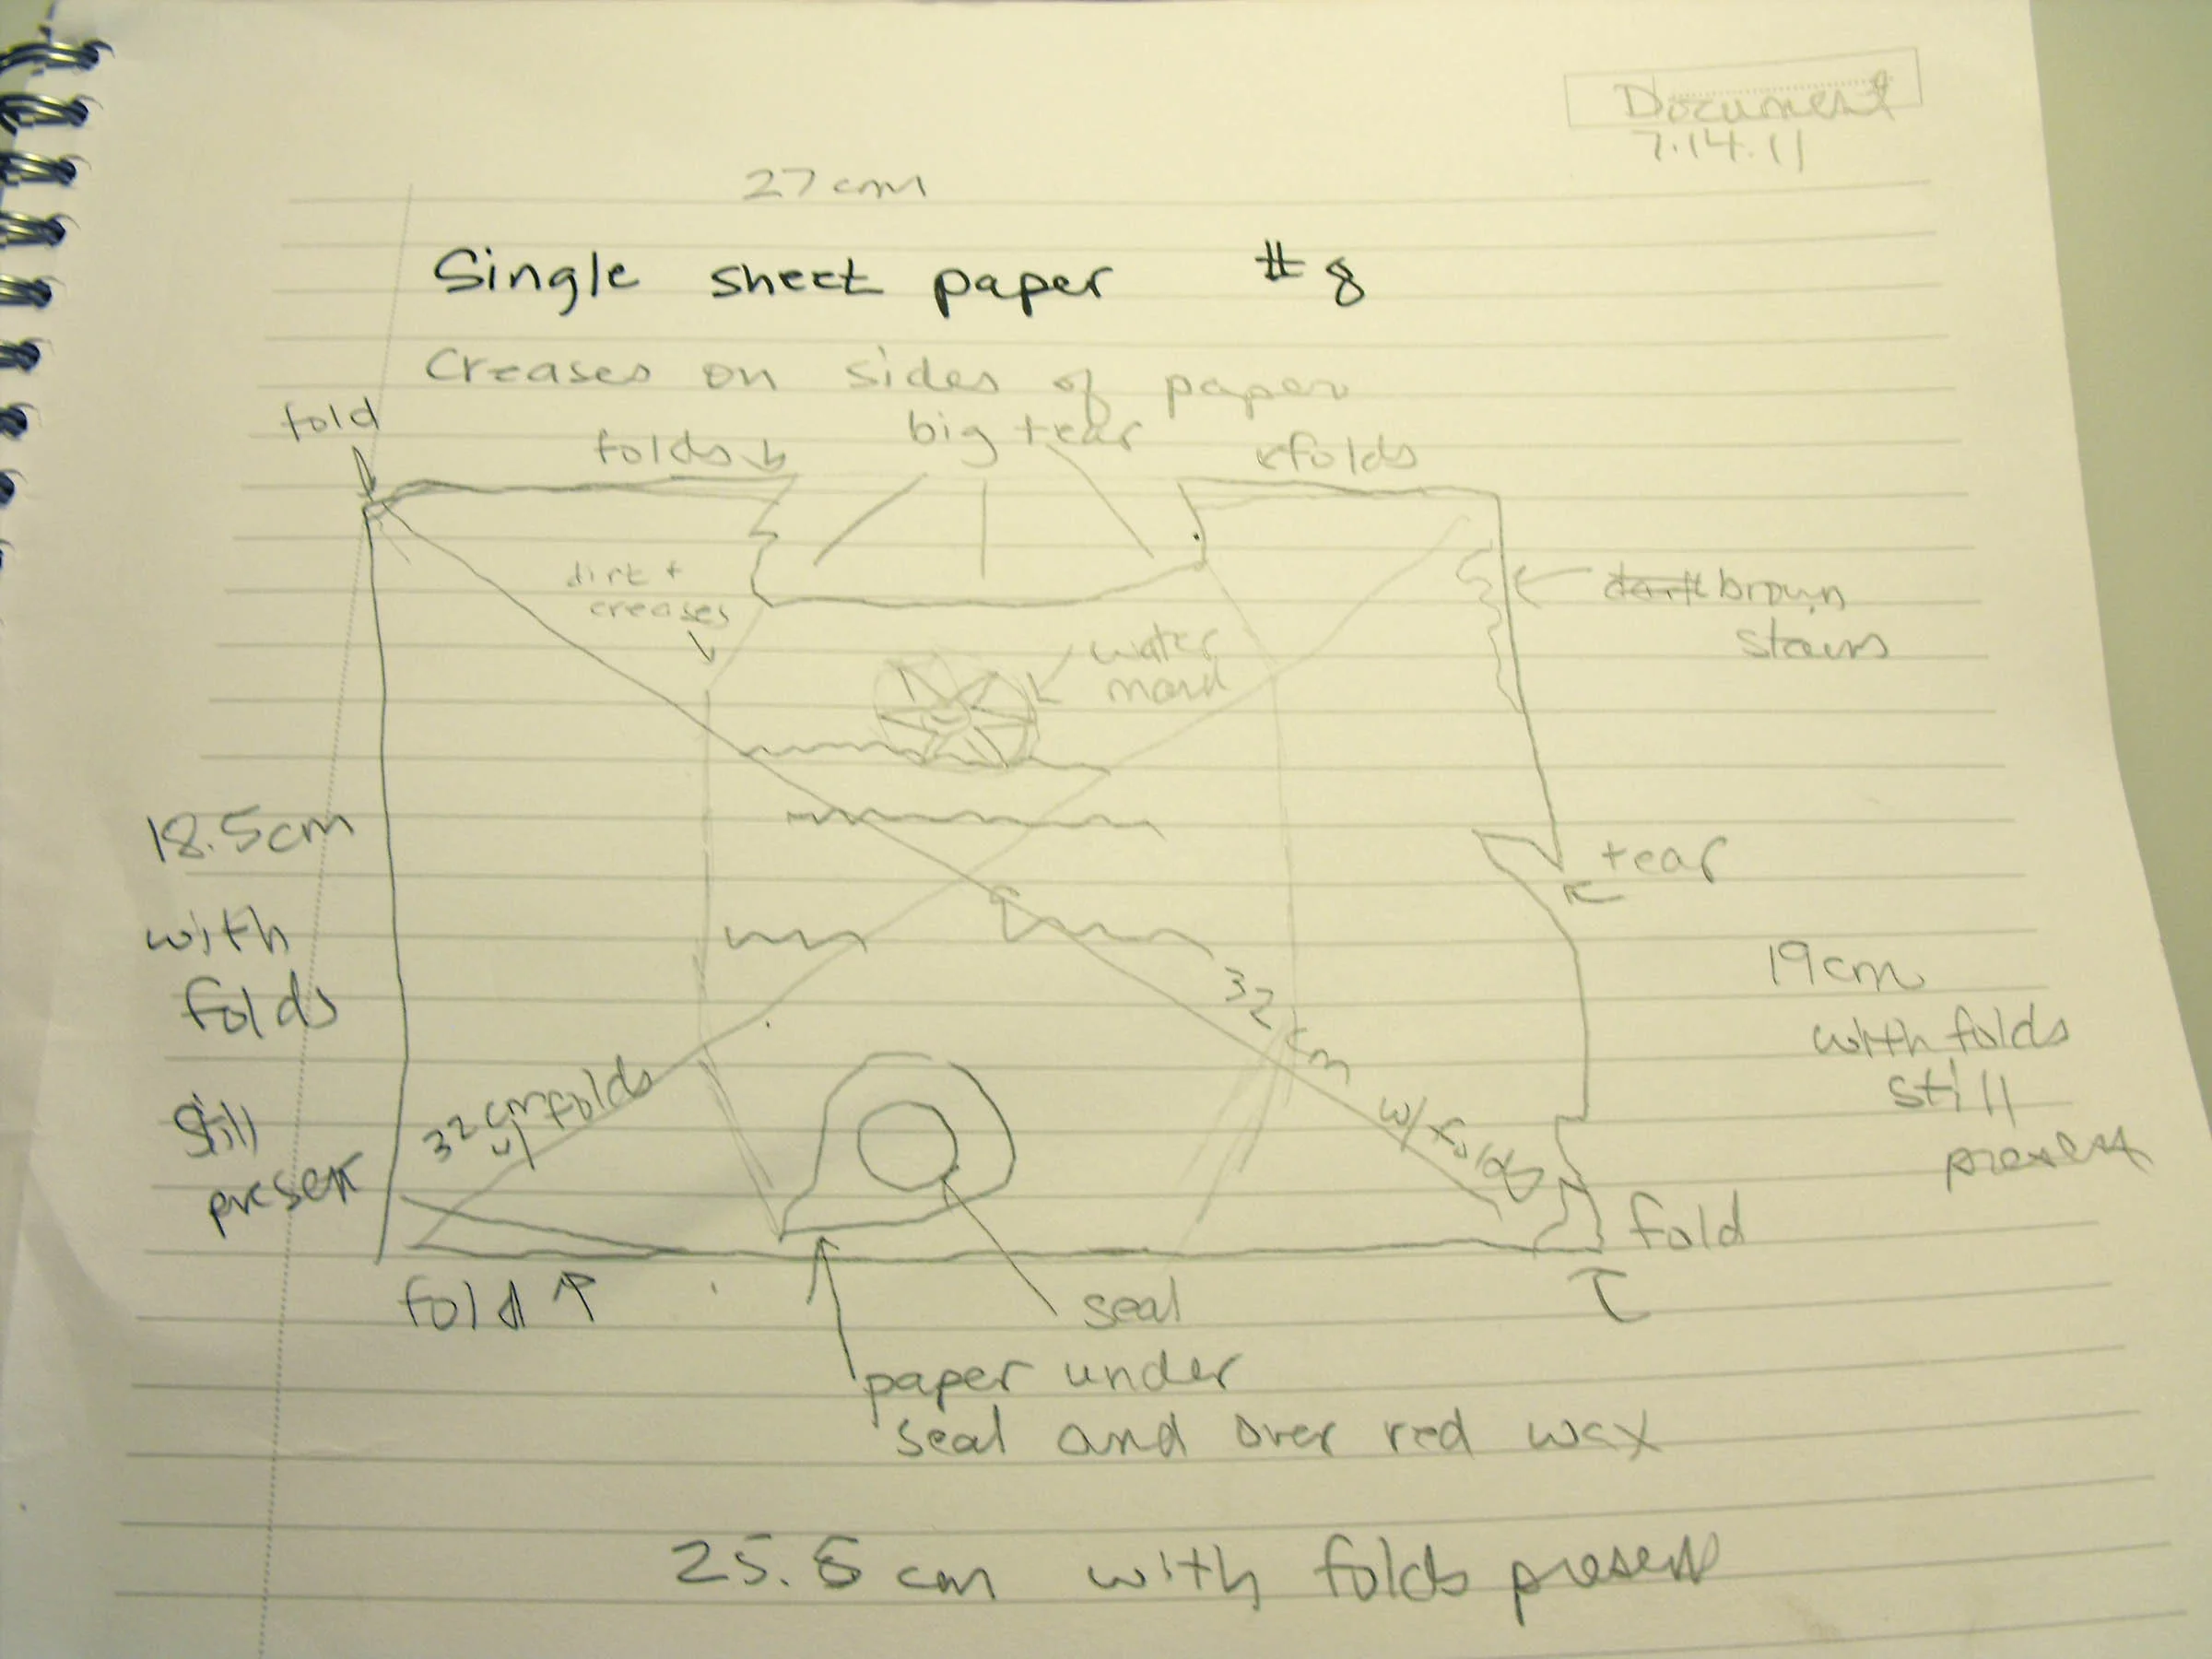 Document
7.14.11
27cm
Single sheet paper #8
Creases on sides of paper
fold
folds
big tear
folds
dirt +
creases
water
mark
brown
stains
18.5cm
with
folds
still
present
tear
19cm
with folds
still
present
32 cm
w/ folds
32 cm folds
w/
fold
fold
seal
paper under
seal and over red wax
25.5 cm with folds present